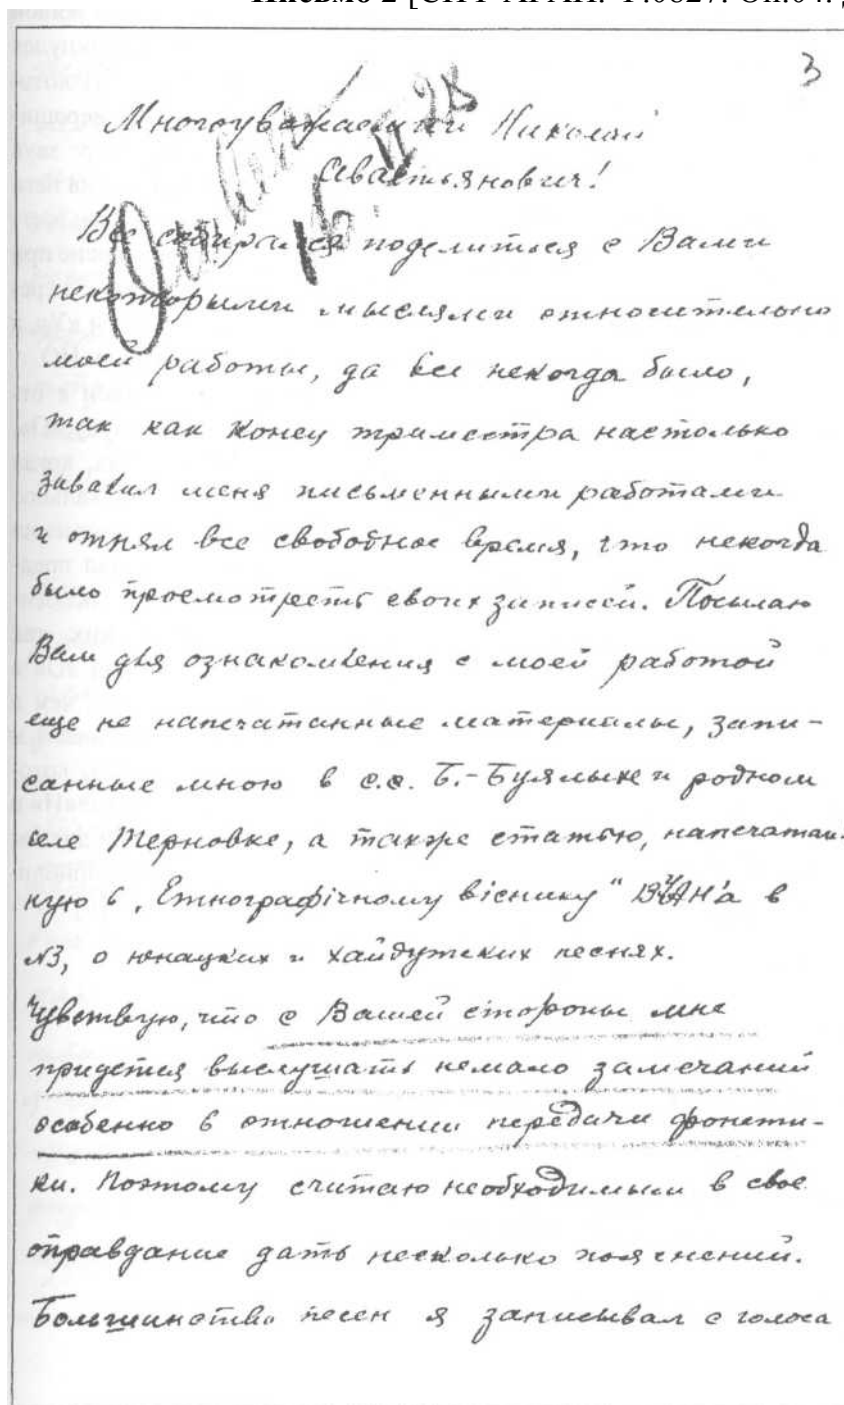 Письмо 2
3
Многоуважаемый Николай
Севастьянович!
Все собирался поделиться с Вами
некоторыми мыслями относительно
моей работы, да все некогда было,
так как конец триместра настолько
завалил меня письменными работами
и отнял все свободное время, что некогда
было просмотреть своих записей. Посылаю
Вам для ознакомления с моей работой
еще не напечатанные материалы, запи-
санные мною в с.с. Б.-Буялыке и родном
селе Терновке, а также статью, напечатан-
ную в „Етнографічному віснику" ВУАН'а в
№3, о юнацких и хайдутских песнях.
Чувствую, что с Вашей стороны мне
придется выслушать немало замечаний
особенно в отношении передачи фонети-
ки. Поэтому считаю необходимым в свое
оправдание дать несколько пояснений.
Большинство песен я записывал с голоса